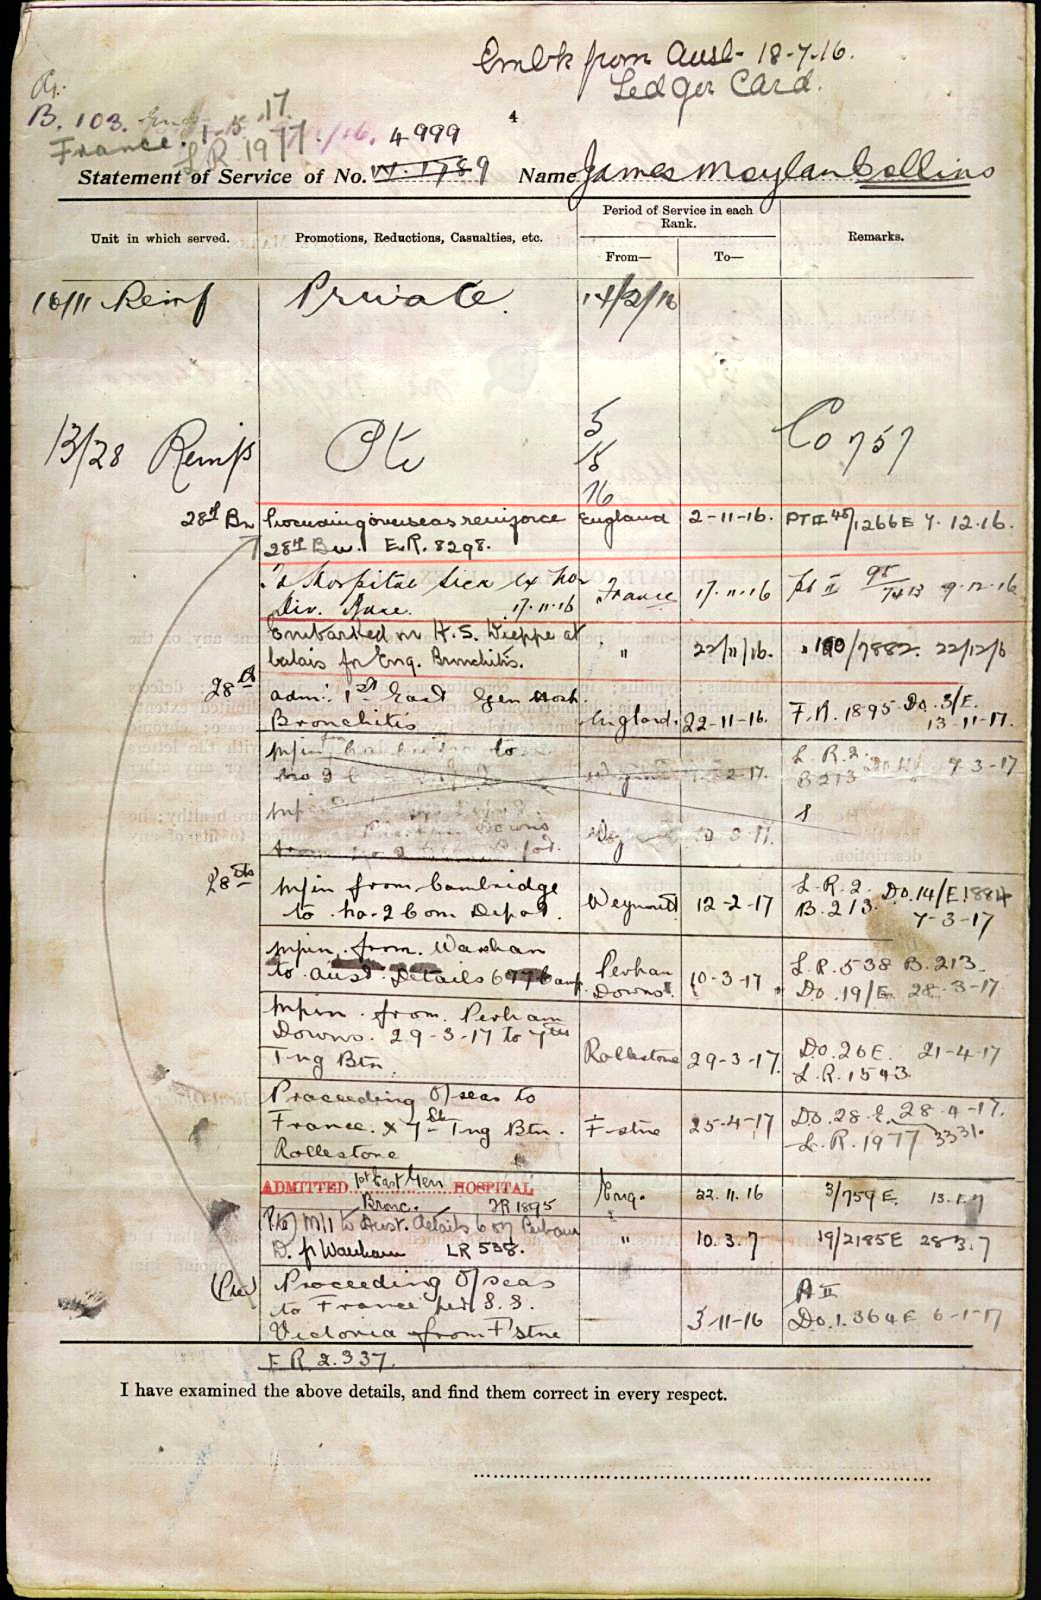 Embk from Aust- 18-7-16.
Ledger Card.
B. 103.
France. 1-5-17
L R 1977
4
4999
Statement of Service of No. Name James Moylan Collins
Unit in which served.
Promotions, Reductions, Casualties, etc.
Period of Service in each
Rank.
From—
To—
Remarks.
16/11 Reinf Private. 14/2/16
13/28 Reinfs Pte 5
15
16
Co 757
28th Bn Proceeding overseas reinforce England 2-11-16. PT II 48/1266E 7.12.16.
28th Bn. E.R. 8298.
To Hospital Sick ex France 17.11.16 pt II 95/7413 9-12-16
Div. 17.11.16
Embarked on H.S. Dieppe at " 22/11/16. 100/7882. 22/12/6
Calais for Eng. Bronchitis.
28th adm: 1st East Gen Hosh. England. 22-11-16. F.R. 1895 Do. 3/E.
Bronchitis 13-11-17.
to L.R.2.
No 2 B 213 7-3-17
Downs 10-3-17.
28th M/in from Cambridge Weymouth 12-2-17 L.R.2. Do.14/E 1884
to No-2 Com Depot. B.213. 7-3-17
M/in from Wareham Perham 10-3-17 L.R.538 B.213
to Aust. Details Downs. Do.19/E 28-3-17
M/in from Perham
Downs. 29-3-17 to 7th Rollestone 29-3-17. Do.26E. 21-4-17
Tng Btn. L.R.1543
Proceeding O/seas to
France. x 7th Tng Btn. F-stne 25-4-17 Do.28.E. 28-4-17.
Rollestone L.R.1977 3331.
ADMITTED 1st East Gen HOSPITAL Eng. 22.11.16 3/759E. 13.1.7
Bronc. FR 1895
M/I to Aust. Details Perham
D. f Wareham LR 538. " 10.3.7 19/2185E 28.3.7
(Pre) Proceeding O/seas A II
to France per S.S. 3-11-16 Do.1.364E 6-1-17
Victoria from F'stne
E R. 2.337.
I have examined the above details, and find them correct in every respect.